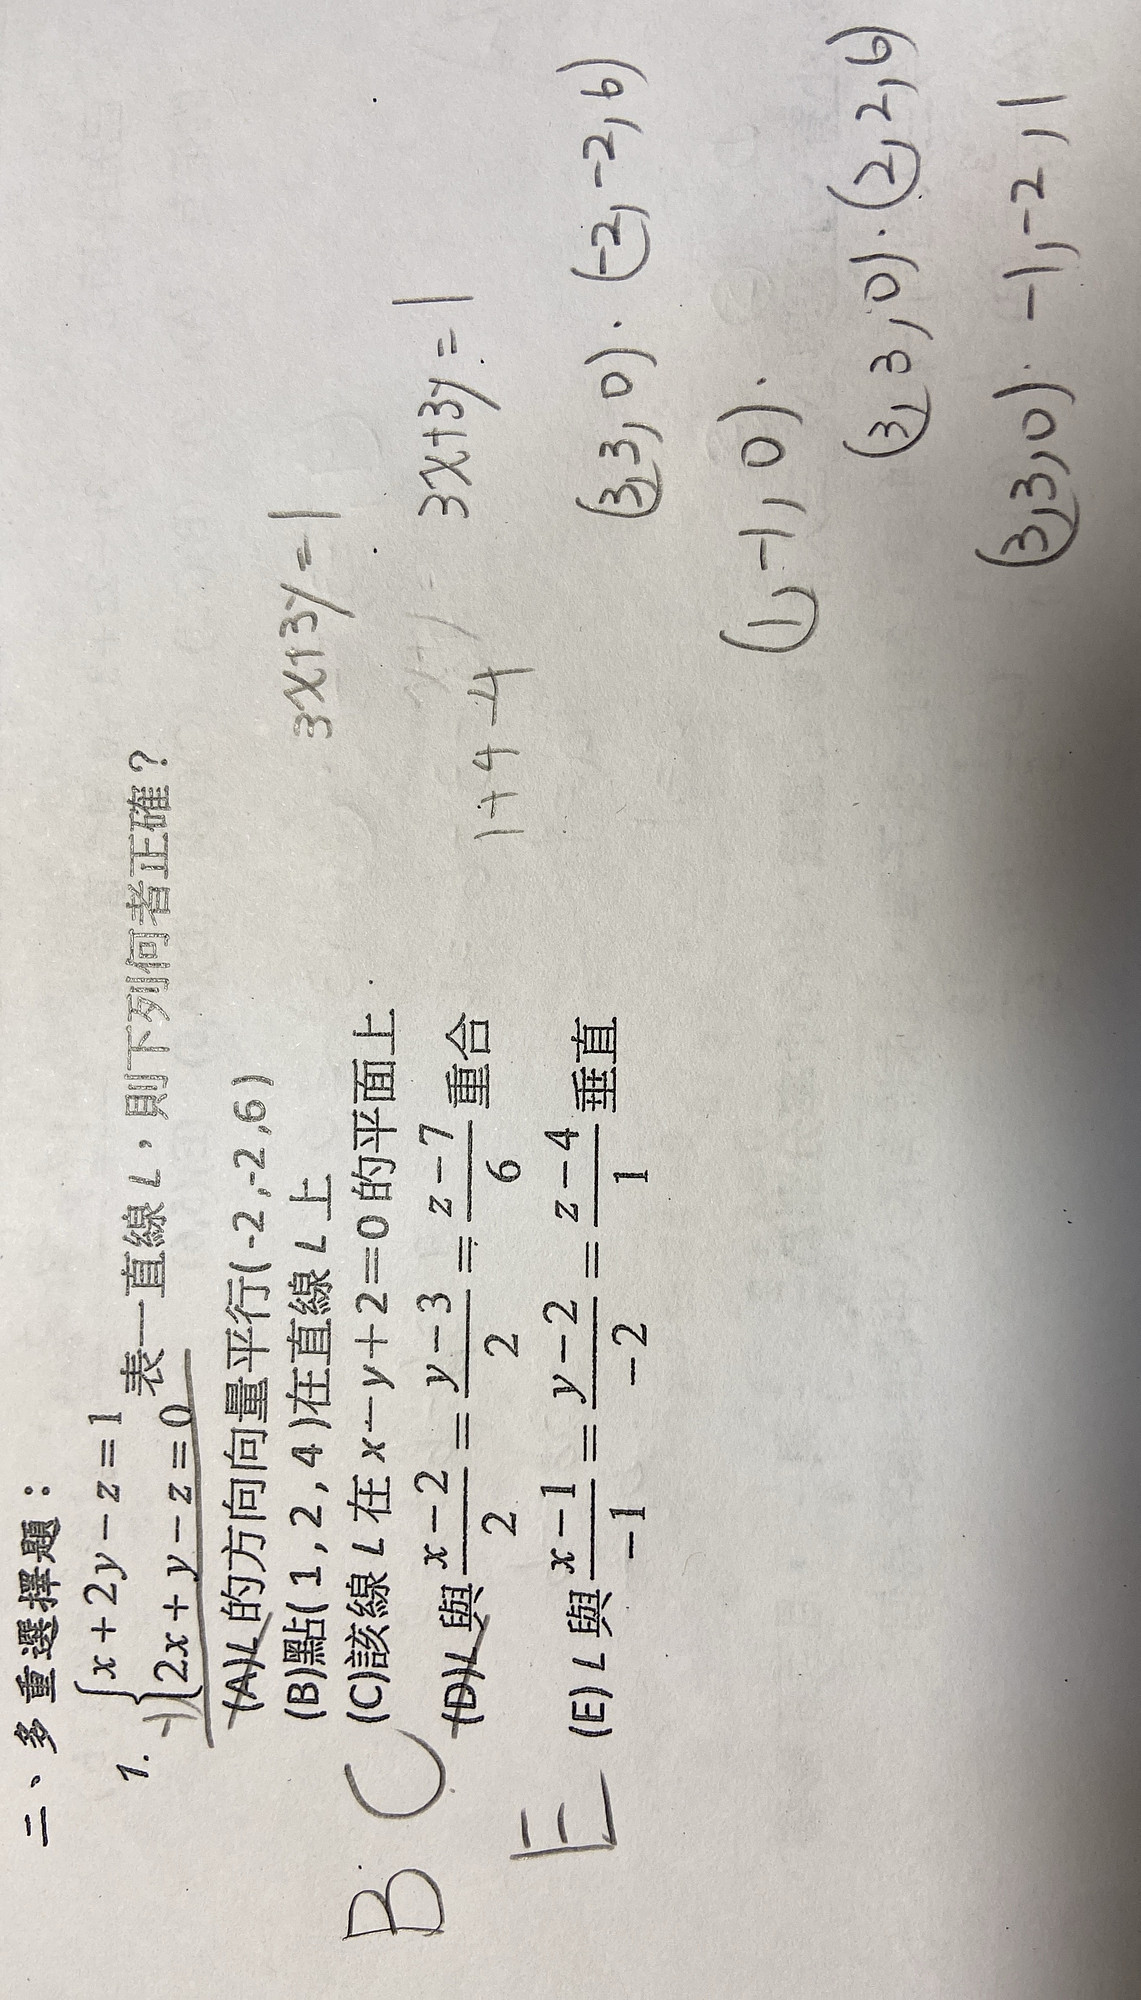 二、多重選擇題：
1. {x+2y−z=1
−){2x+y−z=0 表一直線 L，則下列何者正確？
(A)L的方向向量平行(-2,-2,6)
(B)點(1,2,4)在直線 L 上
(C)該線 L 在 x−y+2=0 的平面上
(D)L 與 (x−2)/2 = (y−3)/2 = (z−7)/6 重合
(E) L 與 (x−1)/−1 = (y−2)/−2 = (z−4)/1 垂直
B C
E
3x+3y=1
3x+3y=1
1+4-4
(3,3,0)·(-2,-2,6)
(1,-1,0)·
(3,3,0)·(2,2,6)
(3,3,0)·-1,-2,1